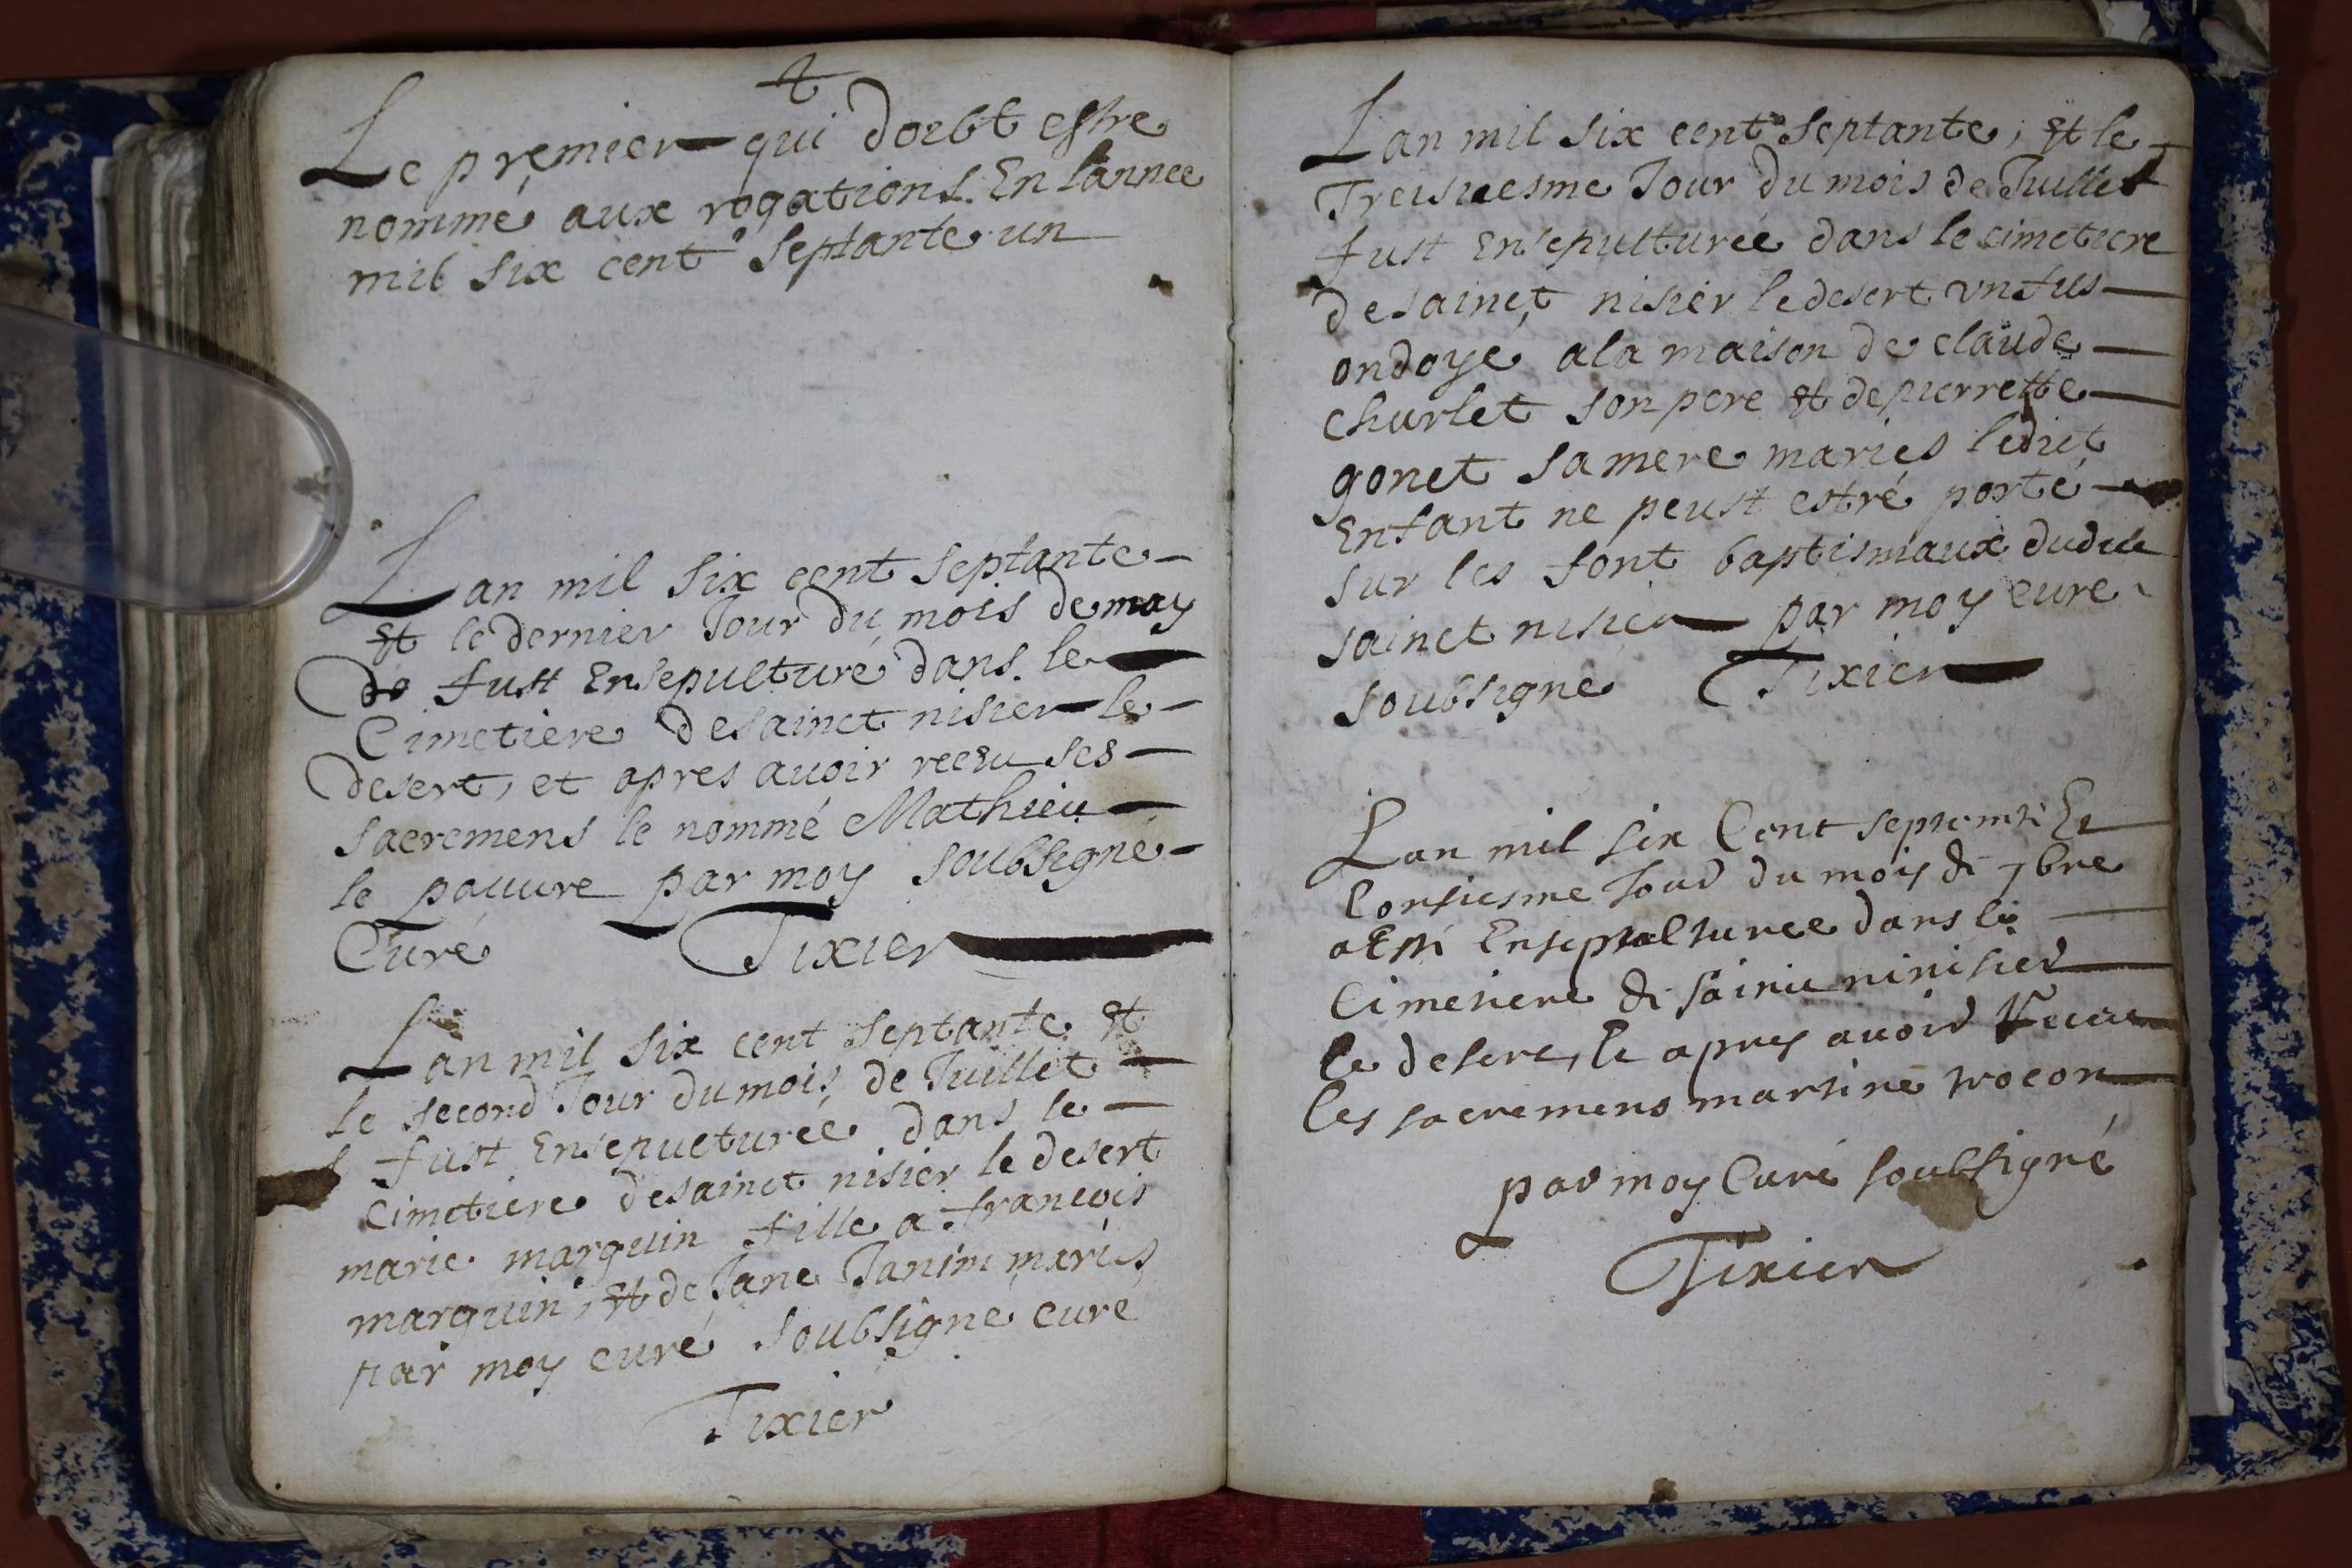 Le premier qui doibt estre
nommé aux rogations En lannee
mil six cent septante un
Lan mil six cent septante
Et le dernier Jour du mois de may
fust Ensepulturé dans le
Cimetiere de sainct nisier le
desert, et apres avoir receu ses
sacremens le nommé Mathieu
le pauure par moy soubsigné
Curé Tixier
Lan mil six cent septante Et
le second Jour du mois de Juillet
fust Ensepulturée dans le
Cimetiere de sainct nisier le desert
marie marguin fille a francois
marguin, Et de Jane Janin mariés
par moy curé soubsigné curé
Tixier
Lan mil six cent septante, Et le
Treisiesme Jour du mois de Juillet
fust Ensepulturée dans le cimetiere
de sainct nisier le desert un fils
ondoyé a la maison de claude
churlet son pere Et de pierrette
gonet sa mere maries ledict
Enfant ne peust estré porté
sur les font baptismaux dudict
sainct nisier par moy curé
soubsigné Tixier
Lan mil six Cent septante Et
Lonsiesme Jour du mois de 7bre
a Esté Ensepulturee dans le
Cimetiere de sainct nisier
le desert, Et apres avoir Receu
les sacremens martine trocon
par moy Curé soubsigné
Tixier